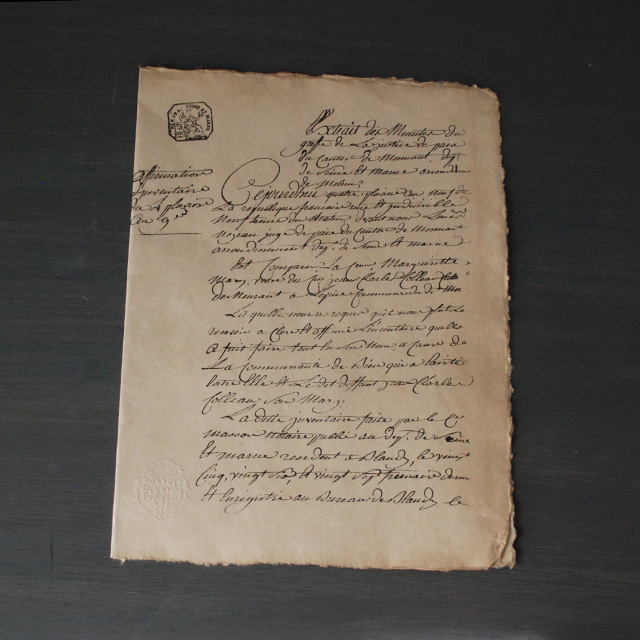 Extrait des Minutes du
greffe de La justice de paix
du Canton de Mormant, dept
de Seine et Marne arrond
de Melun,
affirmation
d'inventaire
du 4 pluviose
an 9
Cejourdhui quatre pluviose an neuf de
La republique francaise une et indivisible
neuf heures du matin, devant nous Louis
juge de paix du Canton de Mormant
arrondissement dept. de Seine et marne
Est Comparu La Cenne Marguerite
Mary, veuve du feu jean Charle Colleau
demeurant a Commune de Mor
La quelle nous a requis qu'il nous plut La
recevoir a Clore et affirmer L'inventaire quelle
a fait faire tant En Son Nom, a Cause de
La Communauté de Bien qui a Existé
Entre Elle et Le dit deffunt jean Charle
Colleau Son Mary,
La dite inventaire faite par le Cn
masson notaire public au dept. de Seine
Et marne resident a Blandy, le vingt
Cinq, vingt Six, Et vingt Sept frimaire dernier
Et Enregistré au Bureau de Blandy le